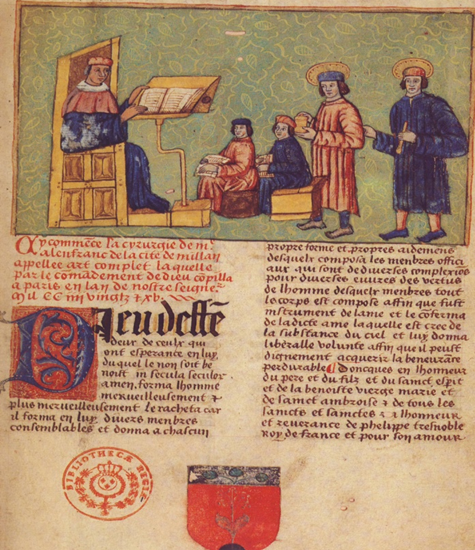 Cy commece la cyrurgie de me
alenfranc de la cite de millan
apellee art complet laquelle
par le comãdement de dieu cõpilla
a paris en lan de nostre seigneᵣ
mil CC iiii vingtz & xv
Dieu deffẽ
deur de ceulx qui
ont esperance en luy
duquel le nom soit be
noit in secula seculor
amen, forma lhomme
merueilleusement &
plus merueilleusement le racheta car
il forma en luy divers menbres
consemblables et donna a chascun
propre forme et propres aidemens
desquelx composa les menbres offici
aux qui sont de diverses complexiõs
pour diverses euvres des vertus
de lhomme desquelx menbres tout
le corps est compose affin que fust
instrument de lame et le coferma
de ladicte ame laquelle est cree de
la substance du ciel et luy donna
liberalle volunte affin quil peust
dignement acquerir la beneurate
perdurable Doncques en lhonneur
du pere et du filz et du sainct esprit
et de la benoiste vierge marie et
de sainct ambroise & de tous les
saincts et sainctes & a lhonneur
et reverance de phelippe tresnoble
roy de france et pour son amour
BIBLIOTHECÆ REGIÆ